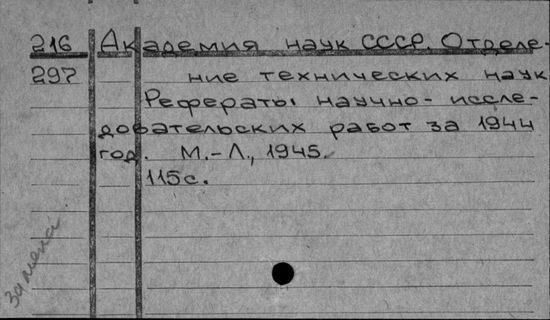 216 Академия наук СССР. Отделе-
297 ние технических наук
Рефераты научно-иссле-
довательских работ за 1944
год. М.-Л., 1945.
115 с.
замена